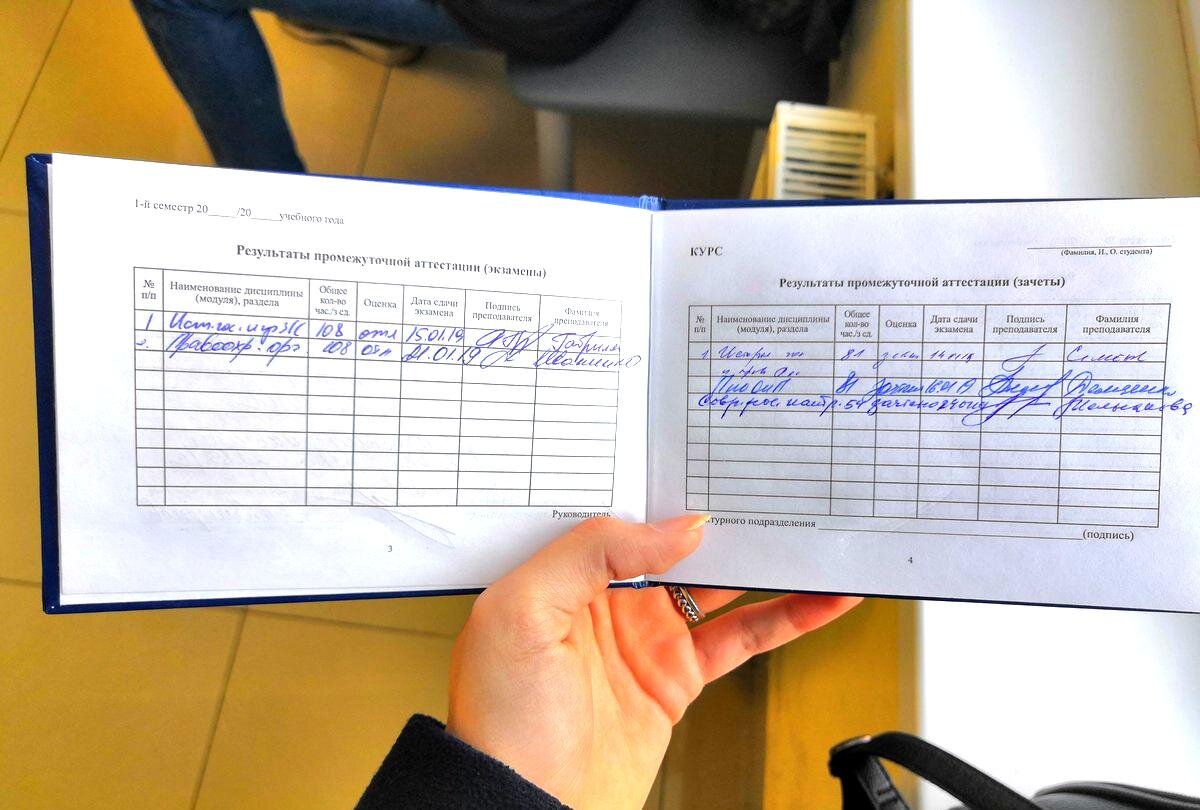 1-й семестр 20____/20____учебного года
Результаты промежуточной аттестации (экзамены)
№ п/п Наименование дисциплины (модуля), раздела Общее кол-во час./з ед. Оценка Дата сдачи экзамена Подпись преподавателя Фамилия преподавателя
1 108 отл 15.01.19
2. Правоохр. орг 108 отл 21.01.19
Руководитель
3
КУРС
(Фамилия, И., О. студента)
Результаты промежуточной аттестации (зачеты)
№ п/п Наименование дисциплины (модуля), раздела Общее кол-во час./з ед. Оценка Дата сдачи экзамена Подпись преподавателя Фамилия преподавателя
1 81
81
54 зачтено
турного подразделения
(подпись)
4